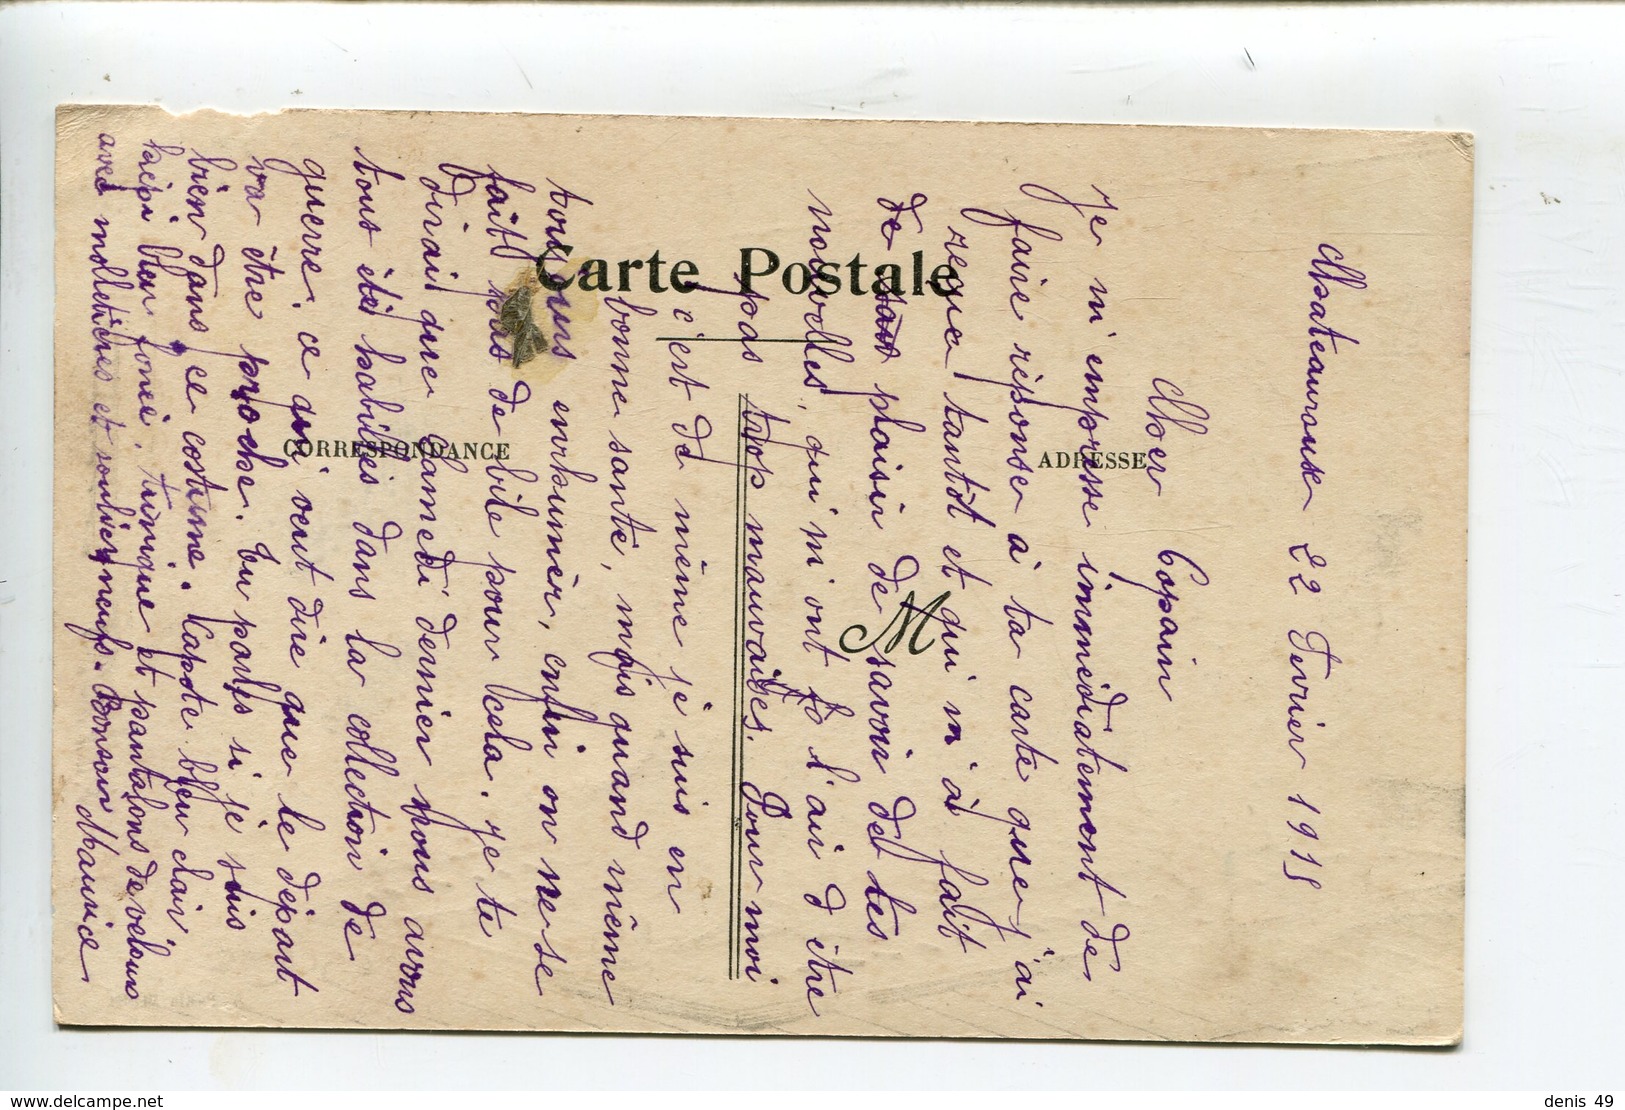 Chateauroux 22 Fevrier 1915
Cher Copain
Je m'empresse immédiatement de
faire réponse à ta carte que j'ai
reçue tantôt et qui m'à fait
de plaisir de savoir de tes
nouvelles, qui m'ont l'air d'être
pas trop mauvaises. Pour moi
c'est de même je suis en
bonne santé, mais quand même
toujours enrhumèr, enfin on ne se
fait pas de bile pour cela. Je te
dirais que Samedi dernier nous avons
tous étés habillés dans la collection de
guerre, ce qui veut dire que le départ
va être proche. Tu parles si je suis
bien dans ce costume. Capote bleu clair
képi bleu foncé, tunique et pantalons de velours
avec molletières et souliers neufs. Bonsoir Maurice
Carte Postale
CORRESPONDANCE
ADRESSE
M
www.delcampe.net
denis 49